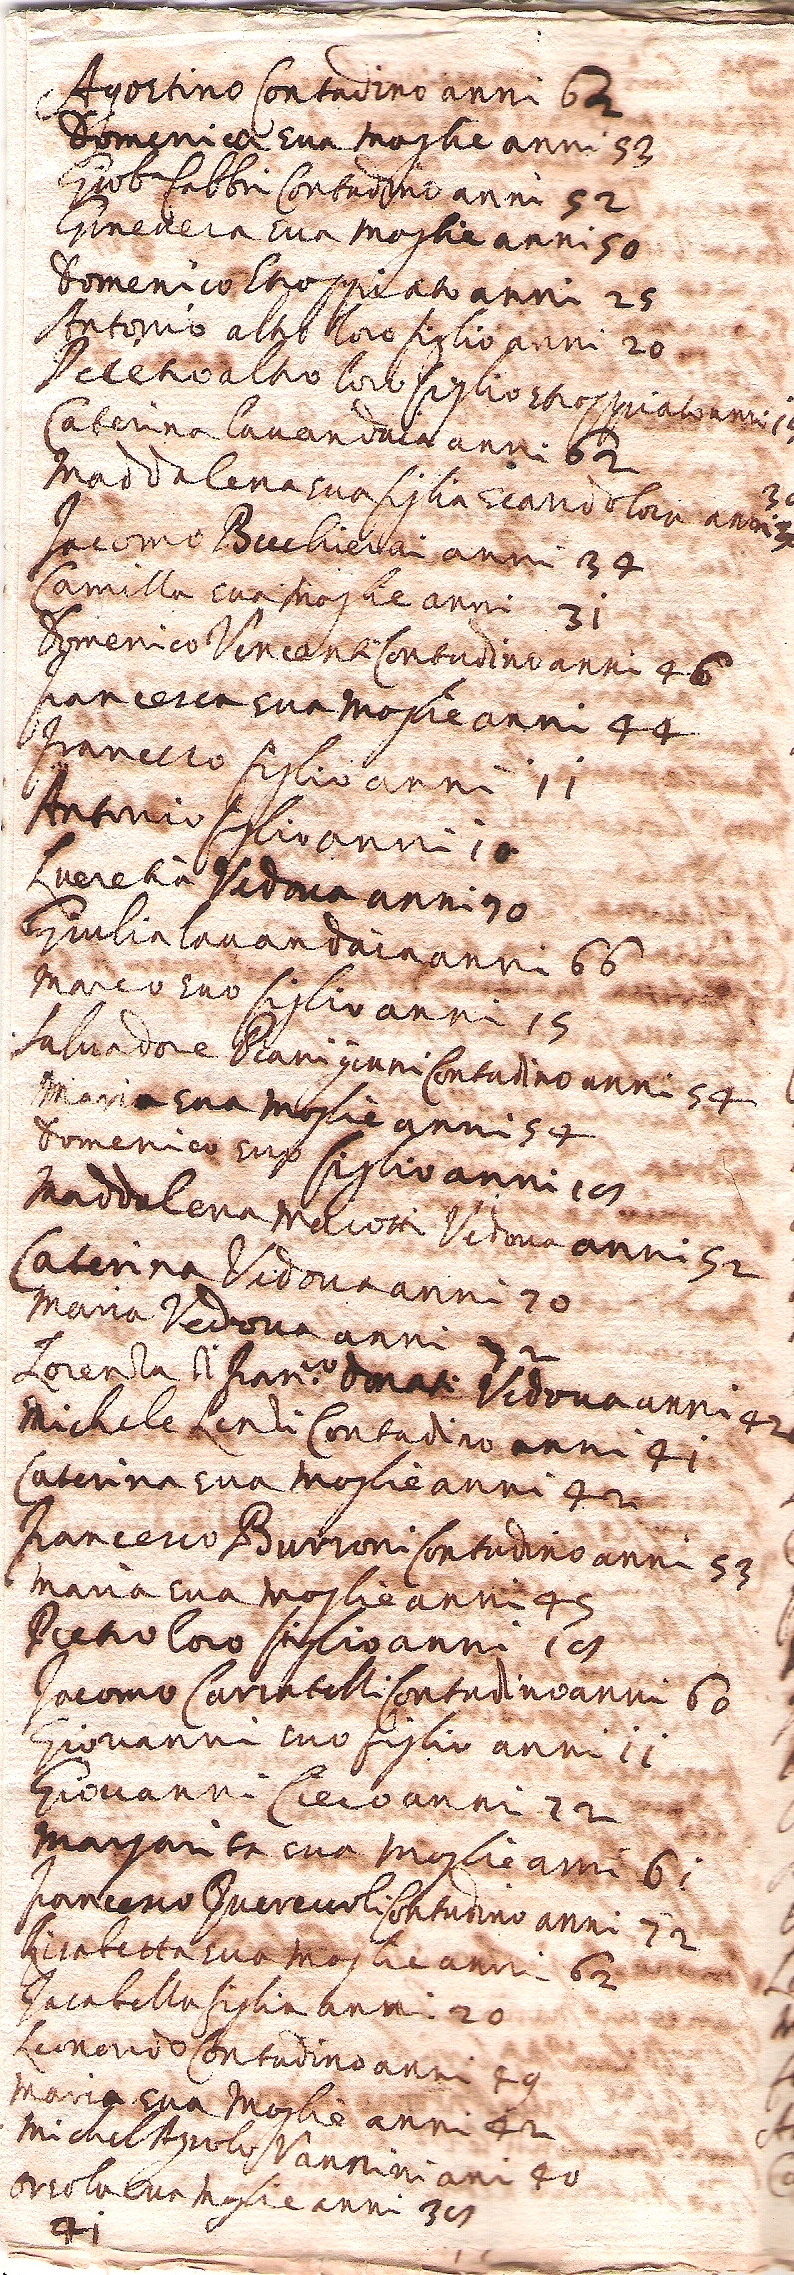 Agostino Contadino anni 62
Domenica sua moglie anni 53
Giob Fabbri Contadino anni 52
Ginevera sua moglie anni 50
Domenico Stroppiato anni 25
Antonio altro loro figlio anni 20
Pietro altro loro figlio stroppiato anni
Caterina lavandaia anni 62
Maddalena sua figlia anni
Jacomo anni 34
Camilla sua moglie anni 31
Domenico Vincenti Contadino anni 46
Francesca sua moglie anni 44
Francesco figlio anni 11
Antonio figlio anni 10
Lucretia Vedova anni 70
Giulia lavandaia anni 66
Marco suo figlio anni 15
Salvadore Pianigiani Contadino anni 54
Maria sua moglie anni 54
Domenico suo figlio anni 19
Maddalena Vedova anni 52
Caterina Vedova anni 70
Maria Vedova anni 72
Lorenza di Fran.co Donati Vedova anni 42
Michele Lendi Contadino anni 41
Caterina sua moglie anni 42
Francesco Burroni Contadino anni 53
Maria sua moglie anni 45
Pietro loro figlio anni 19
Jacomo Contadino anni 60
Giovanni suo figlio anni 11
Giovanni Cieco anni 72
Margarita sua moglie anni 61
Francesco Querciuoli Contadino anni 72
Lisabetta sua moglie anni 62
Isabella figlia anni 20
Leonardo Contadino anni 49
Maria sua Moglie anni 42
Michel Agnolo Vannini ani 40
Orsola sua Moglie anni 39
41